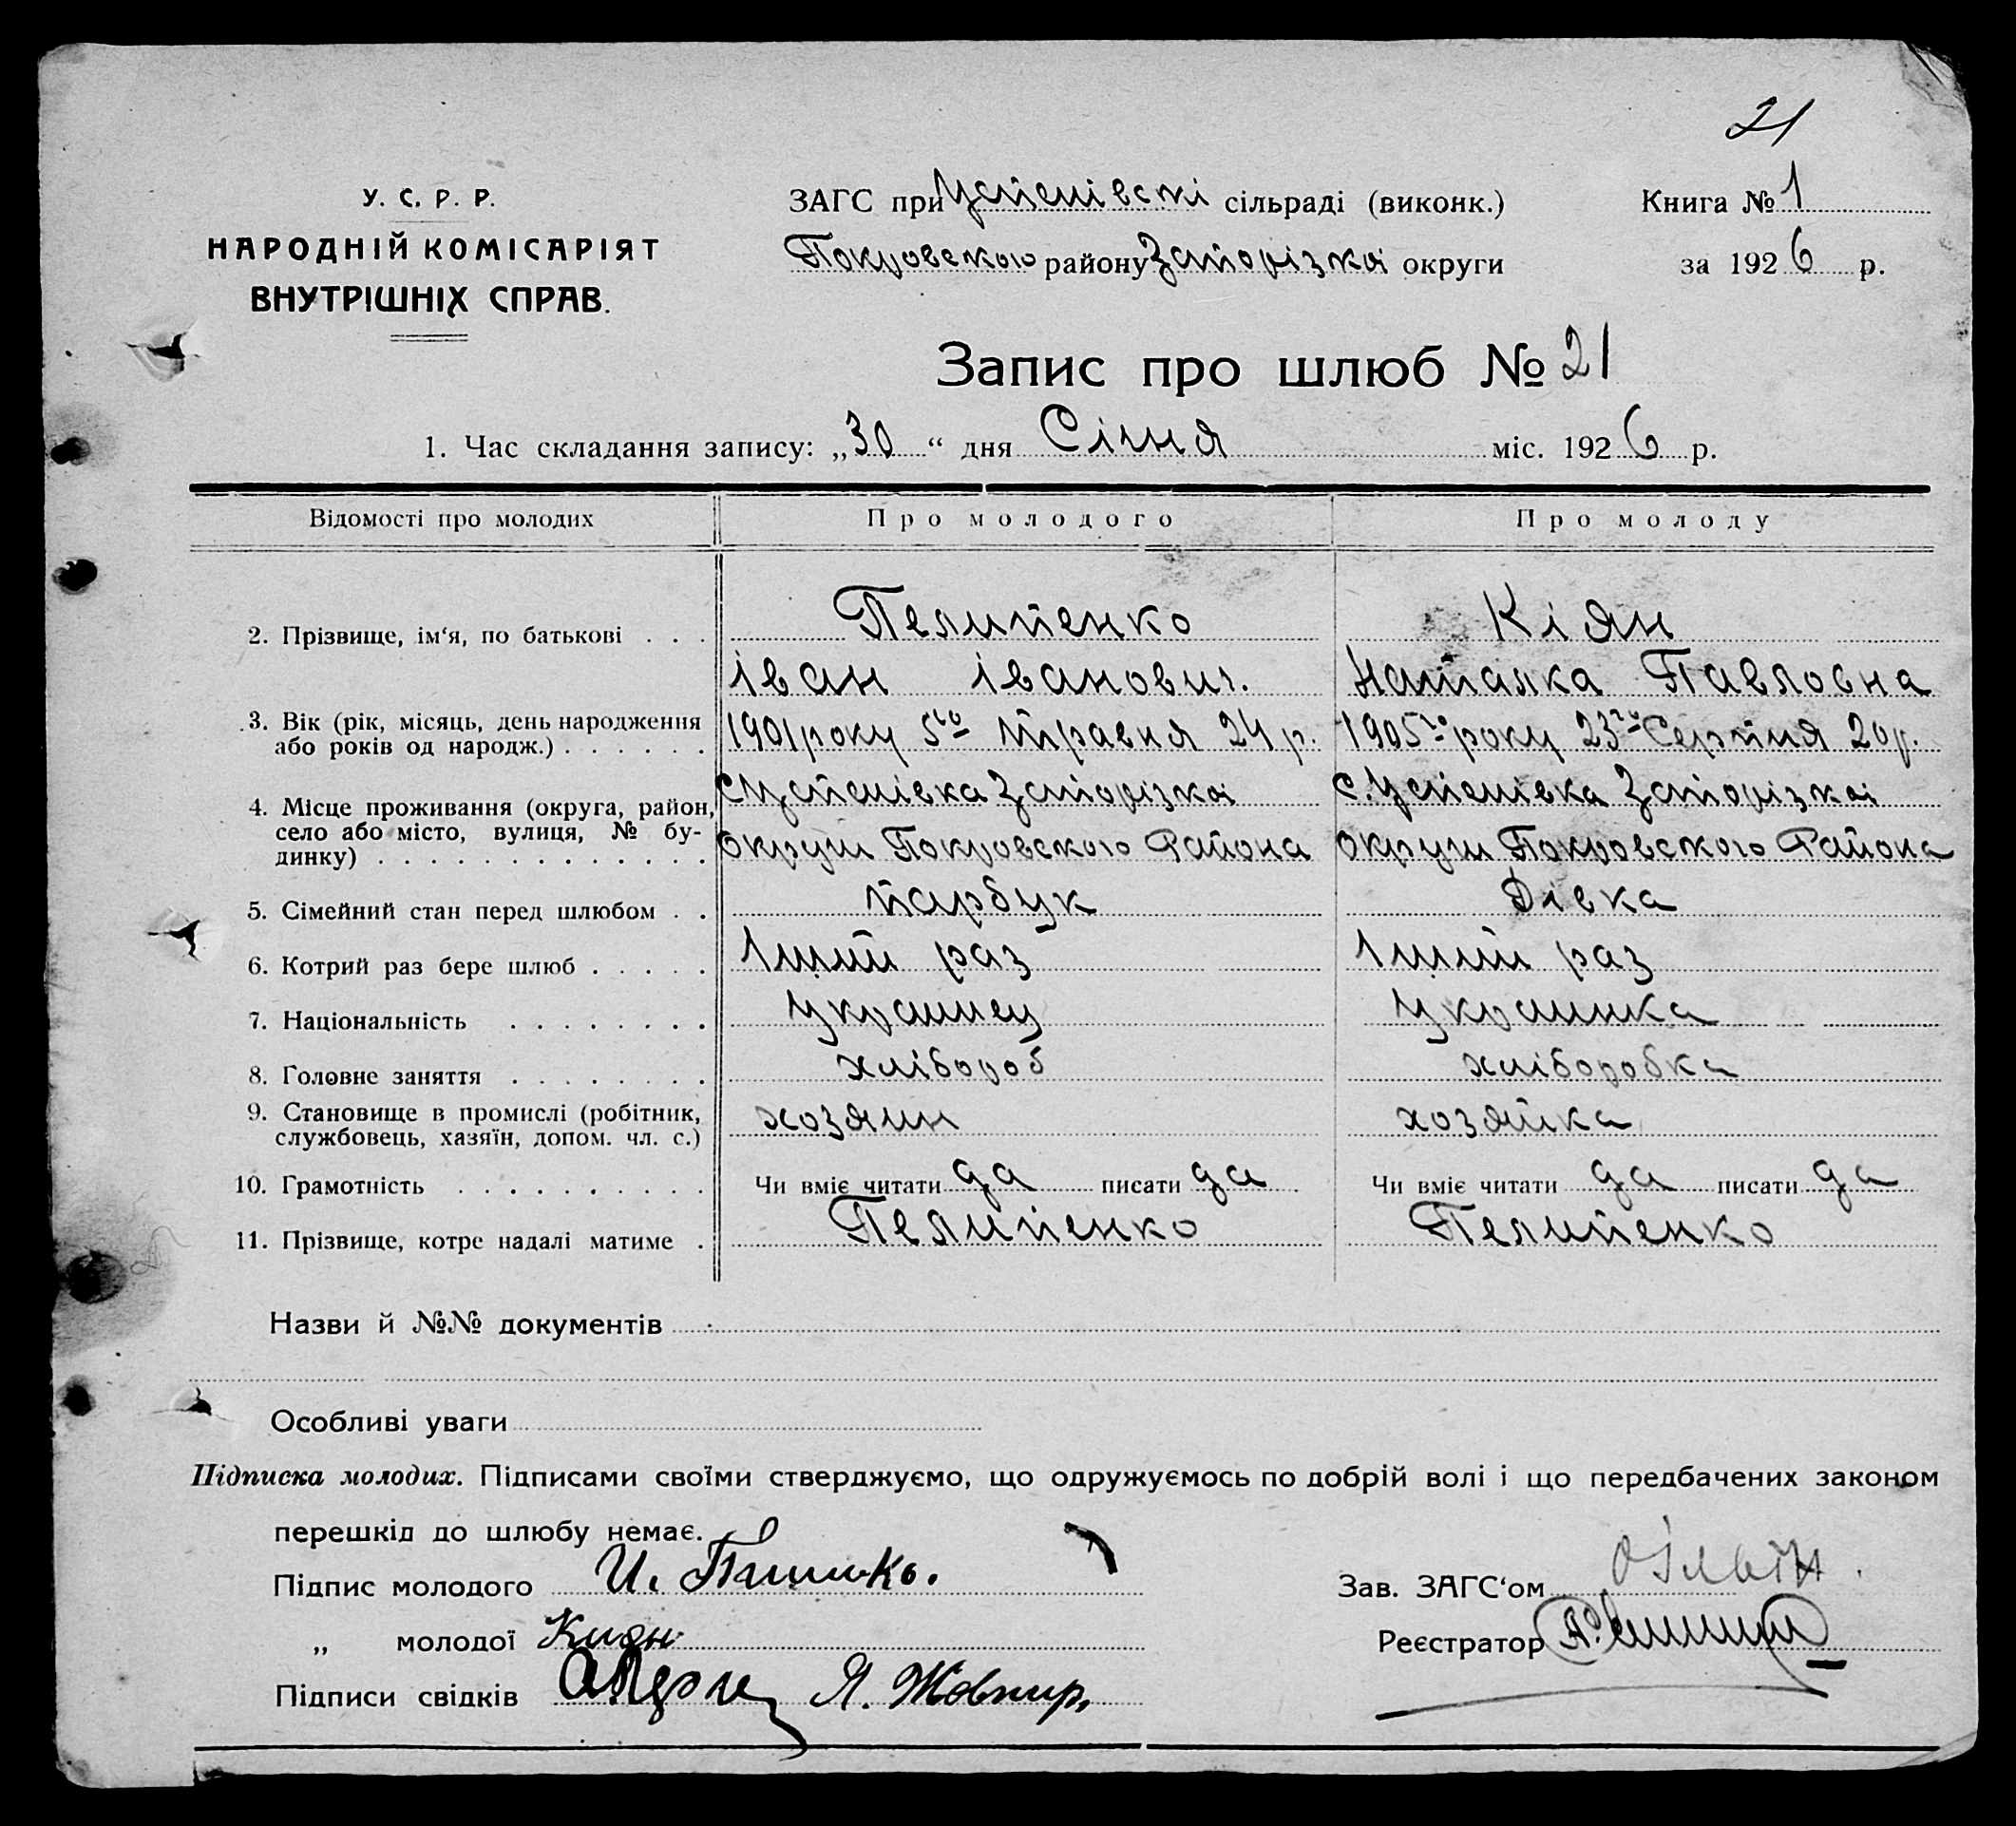 21
У. С. Р. Р.
НАРОДНІЙ КОМІСАРІЯТ
ВНУТРІШНІХ СПРАВ.
ЗАГС при Успенівскі сільраді (виконк.)
Покровского району Запорізкоі округи
Книга № 1
за 1926 р.
Запис про шлюб № 21
1. Час складання запису: „30“ дня Січня міс. 1926 р.
Відомості про молодих Про молодого Про молоду
2. Прізвище, ім‘я, по батькові . . . Пелипенко Кіян
Іван Іванович. Наталка Павловна
3. Вік (рік, місяць, день народження 1901 року 5го Травня 24 р. 1905го року 23го Серпня 20 р.
або років од народж.) . . . . . .
с Успенівка Запорізкоі с. Успенівка Запорізкоі
4. Місце проживання (округа, район,
село або місто, вулиця, № бу-
динку) . . . . . . . . . . . . . округи Покровского Района округи Покровского Района
5. Сімейний стан перед шлюбом . . парбук Дівка
6. Котрий раз бере шлюб . . . . . 1ший раз 1ший раз
7. Національність . . . . . . . . Украинец Украинка
8. Головне заняття . . . . . . . . хлібороб хліборобка
9. Становище в промислі (робітник, хозяин хозяйка
службовець, хазяїн, допом. чл. с.)
10. Грамотність . . . . . . . . . . Чи вміє читати да писати да Чи вміє читати да писати да
11. Прізвище, котре надалі матиме . Пелипенко Пелипенко
Назви й №№ документів
Особливі уваги
Підписка молодих. Підписами своїми стверджуємо, що одружуємось по добрій волі і що передбачених законом
перешкід до шлюбу немає.
Підпис молодого И.
Зав. ЗАГС‘ом
„ молодої Киян
Реєстратор
Підписи свідків Я. Жовнир